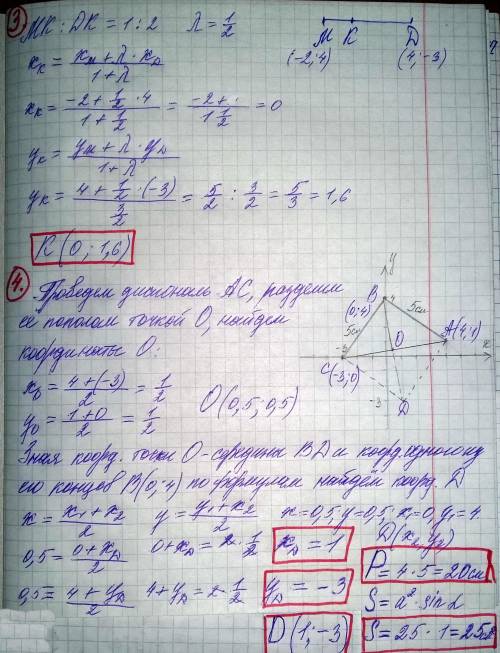 3
МК : DK = 1 : 2 λ = 1/2
M K D
(-2; 4) (4; -3)
xₖ = (xₘ + λ · x_D)/(1 + λ)
xₖ = (-2 + 1/2 · 4)/(1 + 1/2) = (-2 + ·)/(1 1/2) = 0
yₖ = (yₘ + λ · y_D)/(1 + λ)
yₖ = (4 + 1/2 · (-3))/(3/2) = 5/2 : 3/2 = 5/3 = 1,6
К (0; 1,6)
4. Проведем диагональ АС, разделим
её пополам точкой О, найдем
координаты О:
x₀ = (4 + (-3))/2 = 1/2
y₀ = (1 + 0)/2 = 1/2
O (0,5; 0,5)
y
x
B 4
(0; 4)
5см
5см
A(4; 1)
O
-3
C(-3; 0)
-3
D
Зная коорд. точки О - середины BD и коорд. одного из
его концов B(0; 4) по формулам найдем коорд. D
x = (x₁ + x₂)/2 y = (y₁ + x₂)/2 x = 0,5; y = 0,5, x₁ = 0, y₁ = 4.
D(x₂, y₂)
0,5 = (0 + x_D)/2 0 + x_D = 2 · 1/2 x_D = 1
P = 4 · 5 = 20см
0,5 = (4 + y_D)/2 4 + y_D = 2 · 1/2 y_D = -3
S = a² · sin α
D (1; -3)
S = 25 · 1 = 25см²